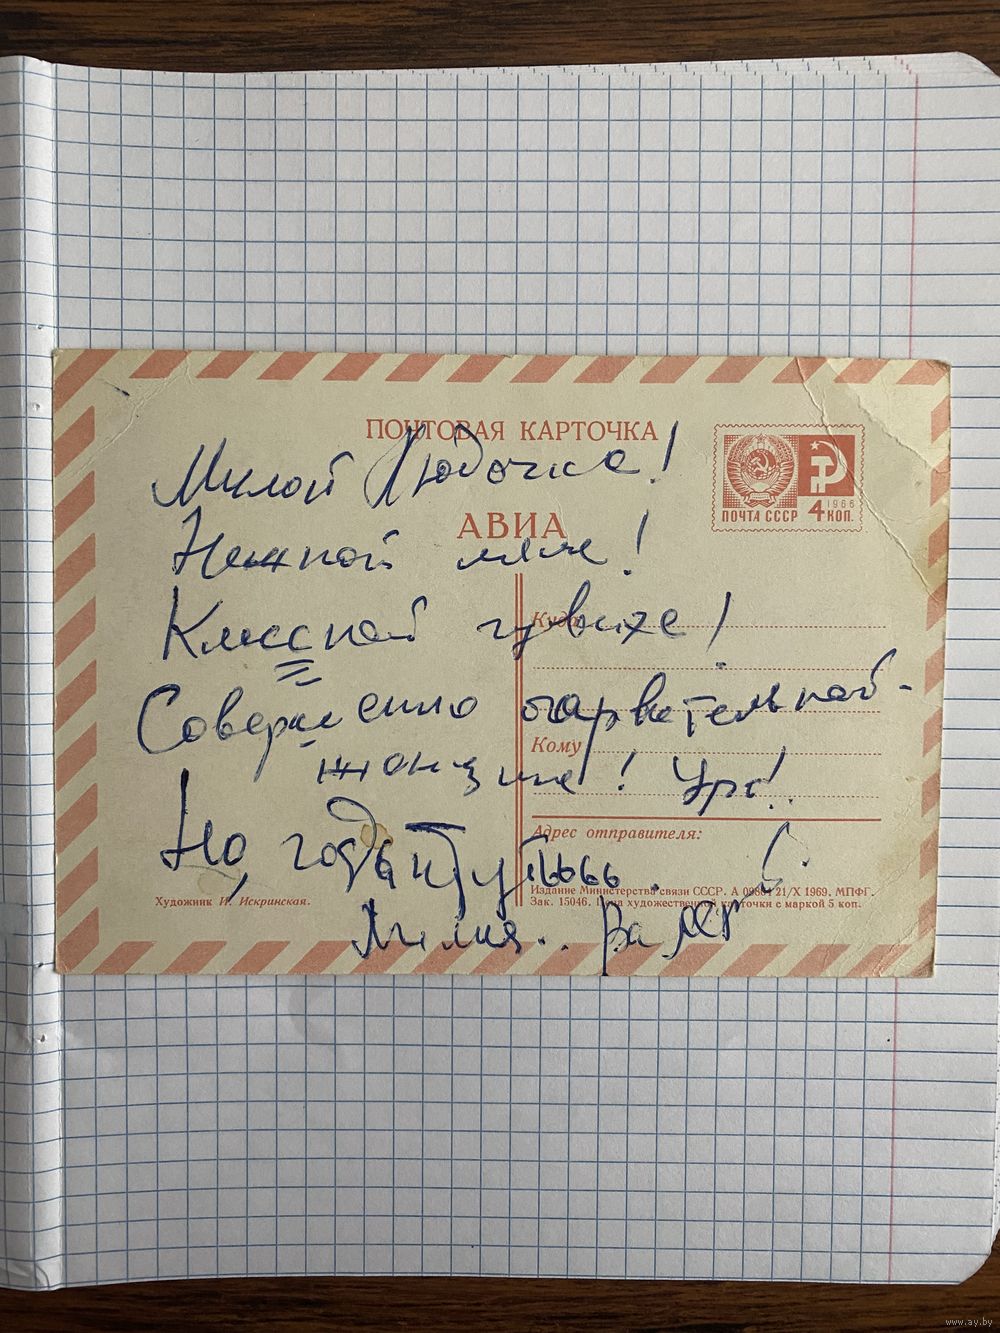 ПОЧТОВАЯ КАРТОЧКА
Милой Людочке!
ПОЧТА СССР 1966 4 КОП.
АВИА
Нежной маме!
Куда
Классной чувихе!
Совершенно очаровательной
Кому
женщине! Ура!..
Адрес отправителя:
Но, годы идутьььь.
Издание Министерства связи СССР. А 09801 21/X 1969. МПФГ.
Художник И. Искринская.
Зак. 15046. Цена художественной карточки с маркой 5 коп.
www.ay.by